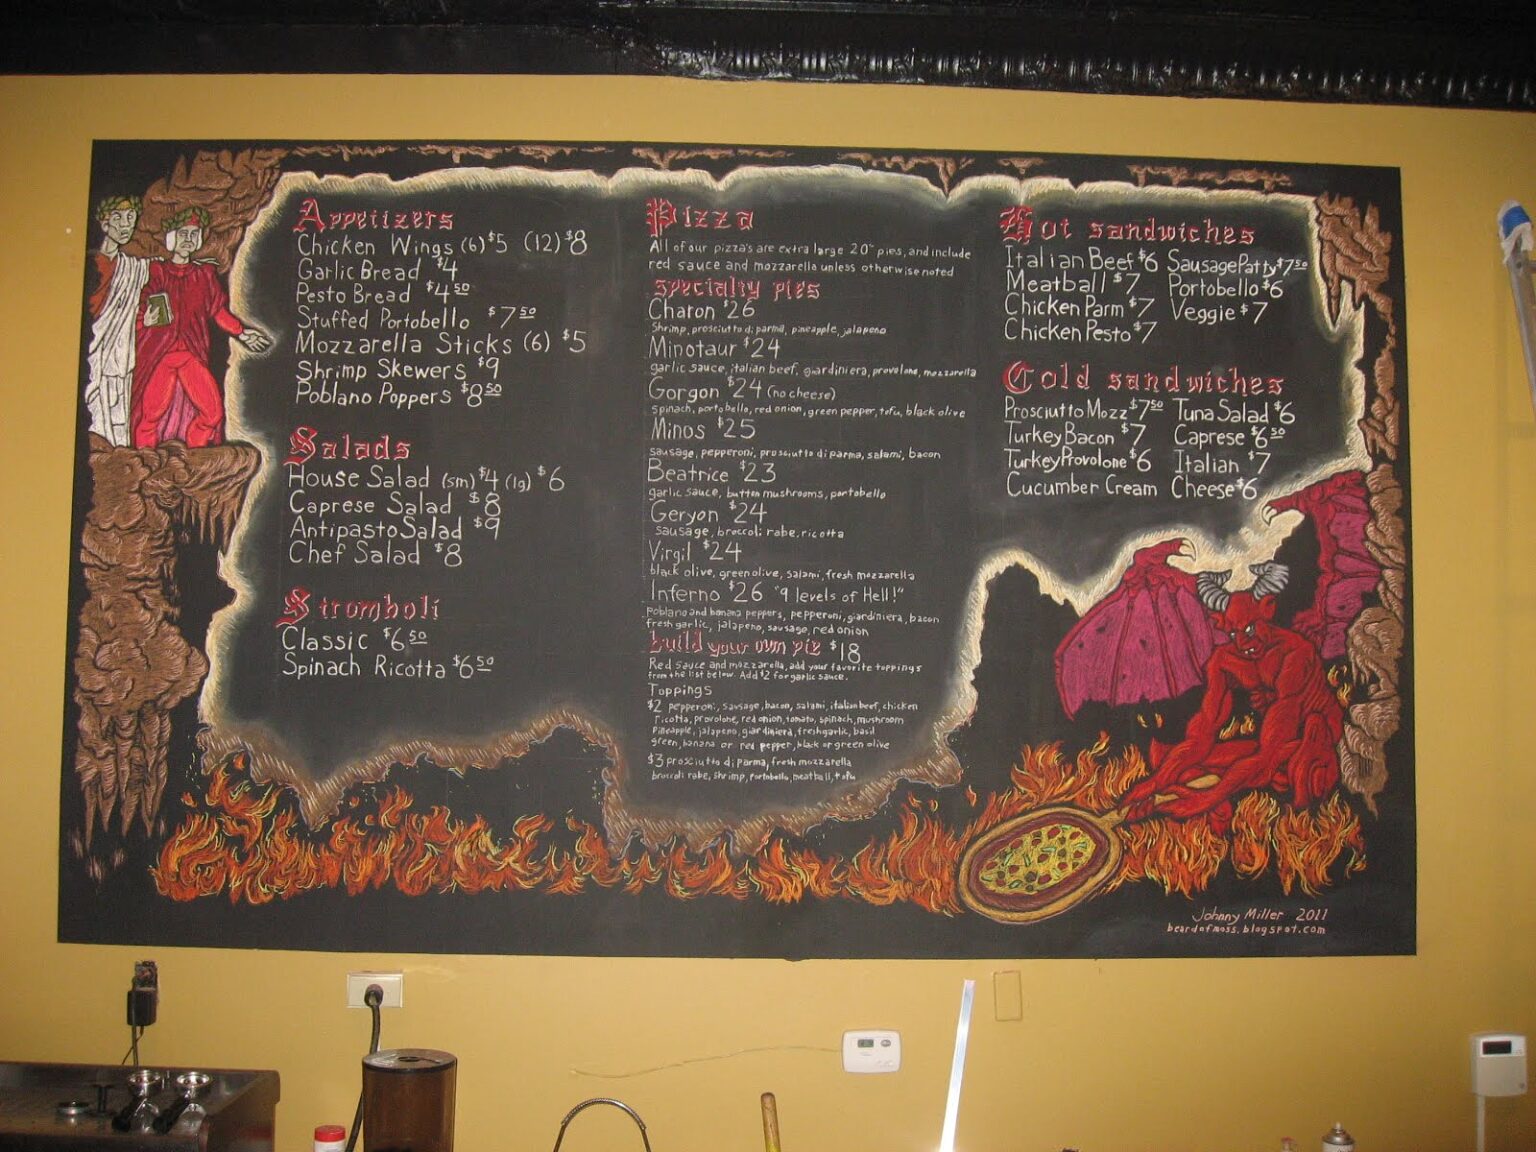 Appetizers
Chicken Wings (6) $5 (12) $8
Garlic Bread $4
Pesto Bread $4 50
Stuffed Portobello $7 50
Mozzarella Sticks (6) $5
Shrimp Skewers $9
Poblano Poppers $8 50
Salads
House Salad (sm) $4 (lg) $6
Caprese Salad $8
Antipasto Salad $9
Chef Salad $8
Stromboli
Classic $6 50
Spinach Ricotta $6 50
Pizza
All of our pizza's are extra large 20" pies, and include
red sauce and mozzarella unless otherwise noted
specialty pies
Charon $26
Shrimp, prosciutto di parma, pineapple, jalapeno
Minotaur $24
garlic sauce, italian beef, giardiniera, provolone, mozzarella
Gorgon $24 (no cheese)
spinach, portobello, red onion, green pepper, tofu, black olive
Minos $25
sausage, pepperoni, prosciutto di parma, salami, bacon
Beatrice $23
garlic sauce, button mushrooms, portobello
Geryon $24
sausage, broccoli rabe, ricotta
Virgil $24
black olive, green olive, salami, fresh mozzarella
Inferno $26 "9 levels of Hell!"
poblano and banana peppers, pepperoni, giardiniera, bacon
fresh garlic, jalapeno, sausage, red onion
build your own pie $18
Red sauce and mozzarella, add your favorite toppings
from the list below. Add $2 for garlic sauce.
Toppings
$2 pepperoni, sausage, bacon, salami, italian beef, chicken
ricotta, provolone, red onion, tomato, spinach, mushroom
pineapple, jalapeno, giardiniera, fresh garlic, basil
green, banana or red pepper, black or green olive
$3 prosciutto di parma, fresh mozzarella
broccoli rabe, shrimp, portobello, meatball, tofu
Hot sandwiches
Italian Beef $6 Sausage Patty $7 50
Meatball $7 Portobello $6
Chicken Parm $7 Veggie $7
Chicken Pesto $7
Cold sandwiches
Prosciutto Mozz $7 50 Tuna Salad $6
Turkey Bacon $7 Caprese $6 50
Turkey Provolone $6 Italian $7
Cucumber Cream Cheese $6
Johnny Miller 2011
beardofmoss.blogspot.com